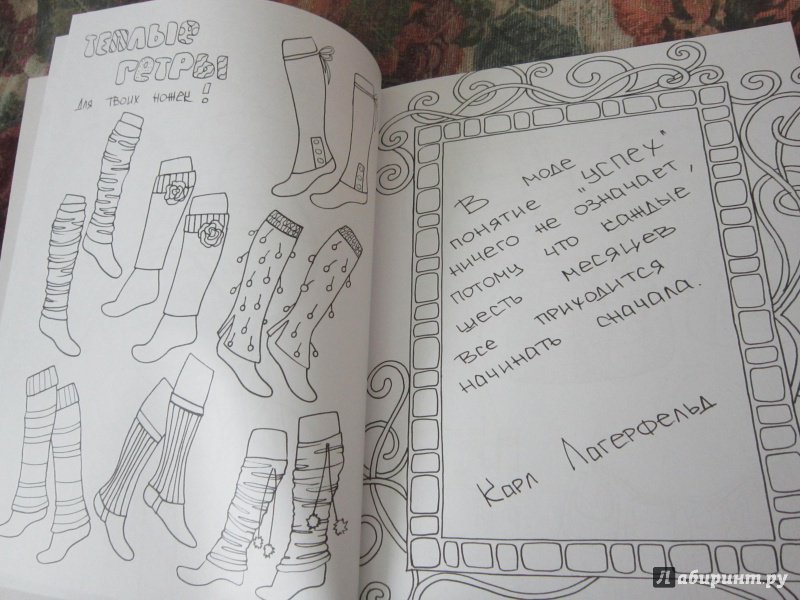 ТЕПЛЫЕ
ГЕТРЫ
ДЛЯ ТВОИХ НОЖЕК!
В моде
понятие "УСПЕХ"
ничего не означает,
потому что каждые
шесть месяцев
все приходится
начинать сначала.
Карл Лагерфельд
Лабиринт.ру